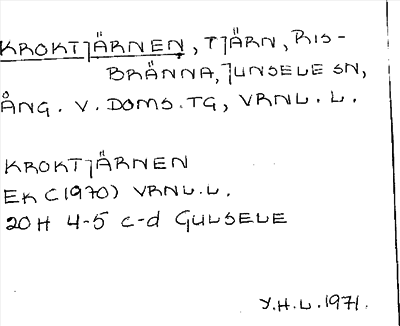 KROKTJÄRNEN, TJÄRN, RIS-
BRÄNNA, JUNSELE SN,
ÅNG. V. DOMS.TG, VRNL.L.
KROKTJÄRNEN
EK (1970) VRNL.L.
20H 4-5 c-d GULSELE
Y.H.L. 1971.